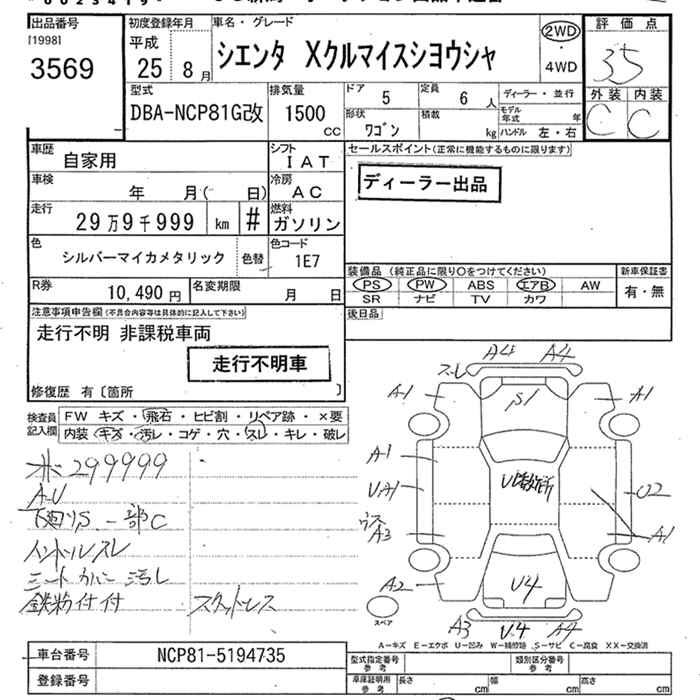 出品番号
[1998]
3569
初度登録年月
平成
25 8月
車名・グレード
シエンタ Xクルマイスシヨウシャ
2WD
・
4WD
評価点
35
外装 内装
C C
型式
DBA-NCP81G改
排気量
1500
CC
ドア 5
定員 6 人
形状 ワゴン
積載 kg
ディーラー・並行
モデル年式 年
ハンドル 左・右
車歴 自家用
シフト IAT
車検 年 月( 日)
冷房 AC
走行 29万9千999 km #
燃料 ガソリン
色 シルバーマイカメタリック 色替
色コード 1E7
R券 10,490円
名変期限 月 日
セールスポイント(正常に機能するものに限ります)
ディーラー出品
装備品(純正品に限り○をつけてください)
PS PW ABS エアB AW
SR ナビ TV カワ
新車保証書
有・無
後日品
注意事項申告欄(不具合内容等は具体的に記入して下さい)
走行不明 非課税車両
走行不明車
修復歴 有〔箇所 〕
検査員記入欄
FW キズ・飛石・ヒビ割・リペア跡・×要
内装・キズ・汚レ・コゲ・穴・スレ・キレ・破レ
299999
A・U
下廻りS 一部C
ハンドルスレ
シートカバー 汚レ
鉄粉付付 スタッドレス
スレ A4 A4
A1 S1 A1
A1
UA1 U2
ウス
A3 A1
A2 U4
A3 U4 A4
スペア
A-キズ E-エクボ U-凹み W-補修跡 S-サビ C-腐食 XX-交換済
車台番号 NCP81-5194735
登録番号
型式指定番号 参考
類別区分番号 参考
車庫証明用 参考 長さ cm 幅 cm 高さ cm